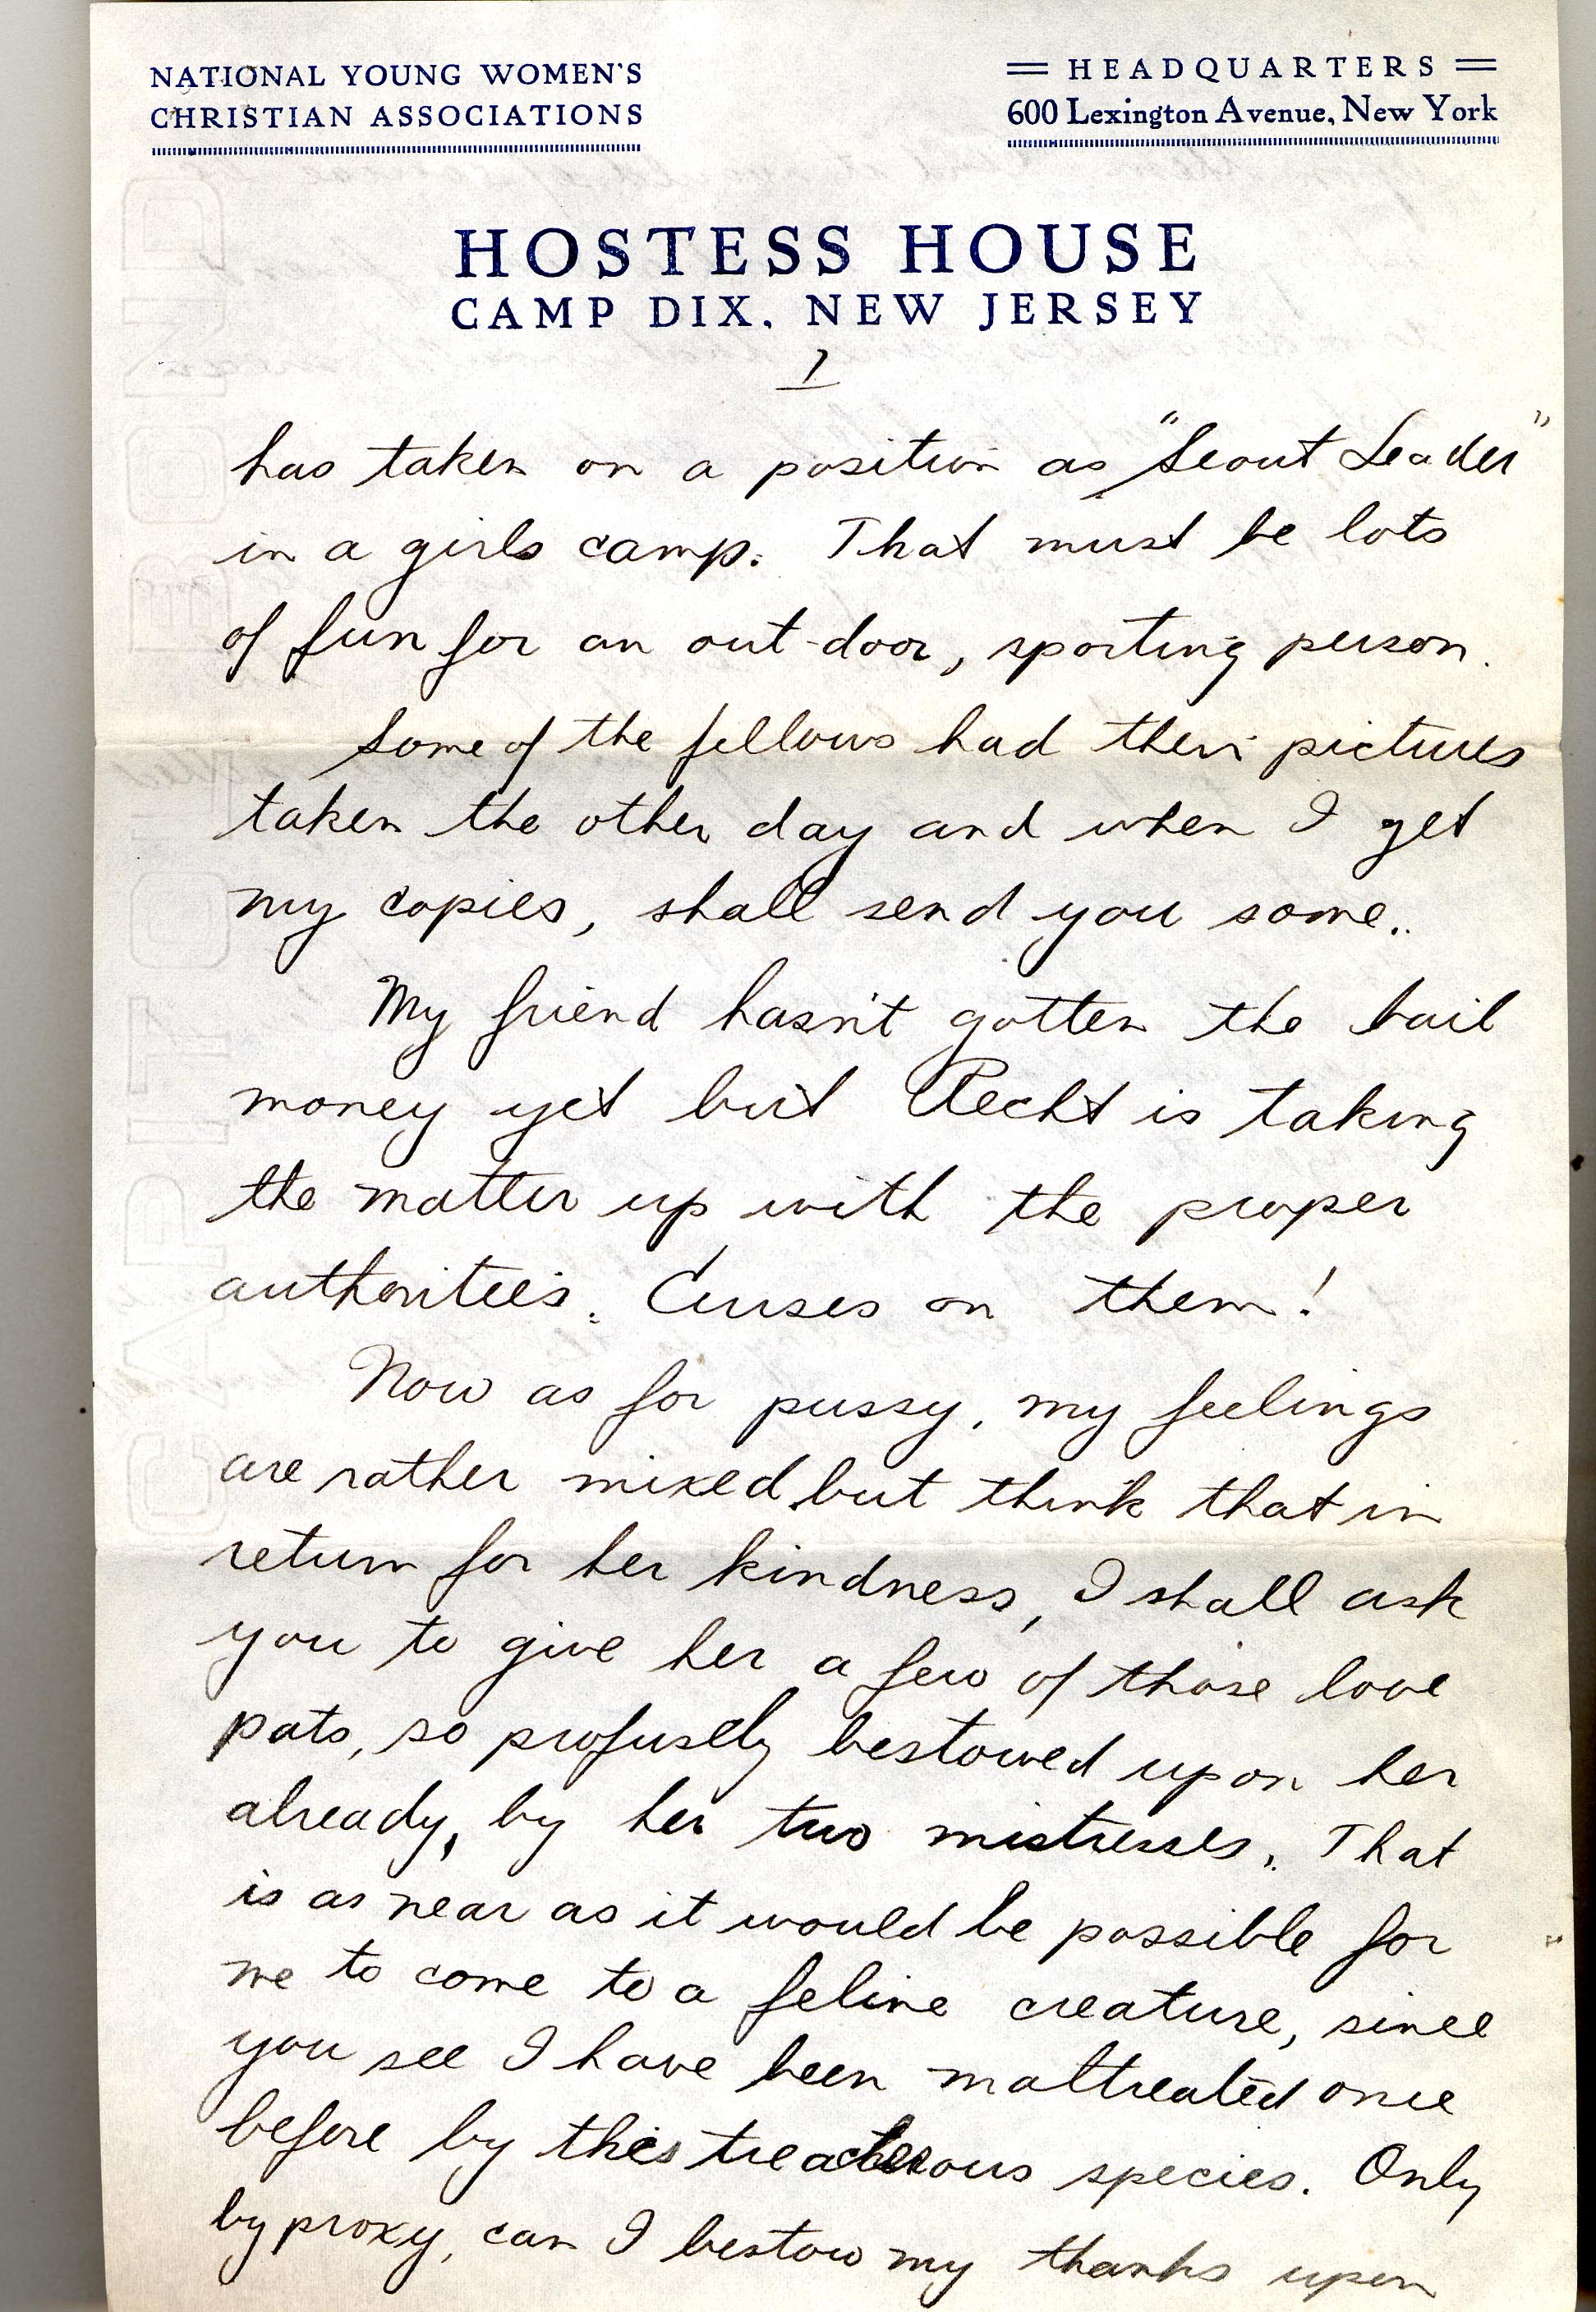 NATIONAL YOUNG WOMEN'S
CHRISTIAN ASSOCIATIONS
HEADQUARTERS
600 Lexington Avenue, New York
HOSTESS HOUSE
CAMP DIX, NEW JERSEY
7
has taken on a position as "Scout Leader"
in a girls camp. That must be lots
of fun for an out-door, sporting person.
Some of the fellows had their pictures
taken the other day and when I get
my copies, shall send you some..
My friend hasn't gotten the bail
money yet but Recht is taking
the matter up with the proper
authorities. Curses on them!
Now as for pussy, my feelings
are rather mixed but think that in
return for her kindness, I shall ask
you to give her a few of those love
pats, so profusely bestowed upon her
already, by her two mistresses. That
is as near as it would be possible for
me to come to a feline creature, since
you see I have been maltreated once
before by this treacherous species. Only
by proxy, can I bestow my thanks upon